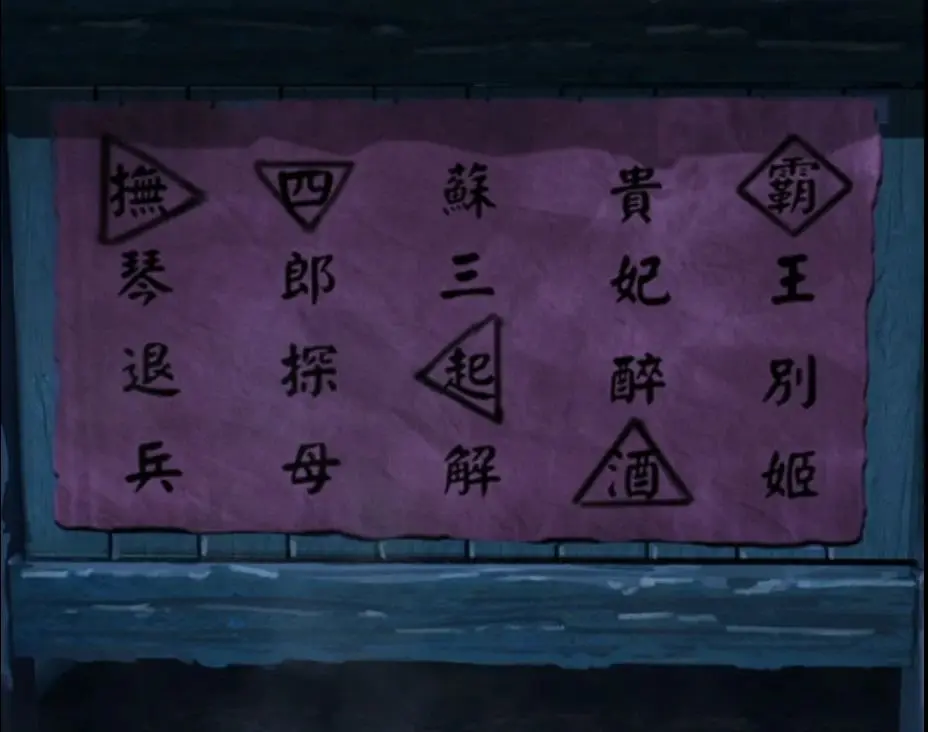 霸王別姬
貴妃醉酒
蘇三起解
四郎探母
撫琴退兵